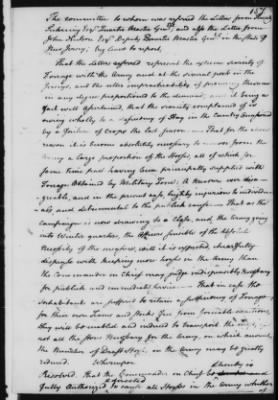 157
The committee to whom was referred the Letters from Timothy
Pickering Esqr Quarter Master Genl and also the Letter from
John Neilson Esqr Deputy Quarter Master Genl in the State of
New Jersey; beg leave to report,
That the Letters referred represent the extreme scarcity of
Forage with the Army and at the several posts in the
Jerseys, and the utter impracticability of procuring
in any degree proportioned to the demand, it being a
fact well ascertained, that the scarcity complained of is
owing wholly to a deficiency of Hay in the Country occasioned
by a failure of Crops the last season — That for the above
reason it is become absolutely necessary to remove from the
Army a large proportion of the Horses, all of which for
some time past having been principally supplied with
Forage obtained by Military Force. A Measure ever disagreeable,
and in the present case, highly injurious to individuals
and detrimental to the publick cause — That as the
Campaign is now drawing to a Close, and the Army going
into Winter quarters, the Officers sensible of the
Necessity of the measure, will it is expected chearfully
dispense with keeping more horses in the Army than
the Commander in Chief may judge indispensibly necessary
for publick and immediate service — That in case the
Inhabitants are suffered to retain a sufficiency of Forage
for their own Teams and Stocks free from forcible exactions,
they will be enabled and induced to transport the
not all the
the Number of Draft Horses in the Army may be greatly
reduced. Whereupon
Resolved, That the Commander in Chief be & hereby is
fully Authorized & directed to cause all Horses in the Army whether